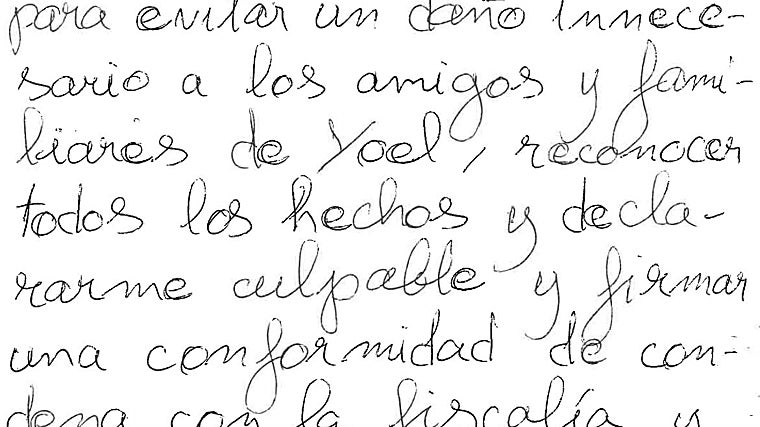 para evitar un daño innece-
sario a los amigos y fami-
liares de Yoel, reconocer
todos los hechos y decla-
rarme culpable y firmar
una conformidad de con-
dena con la fiscalía y